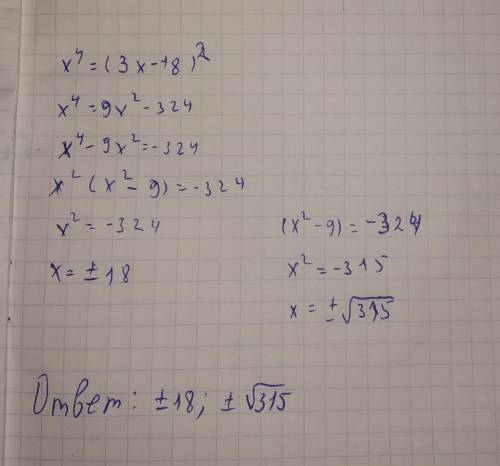 x⁴=(3x-18)²
x⁴=9x²-324
x⁴-9x²=-324
x²(x²-9)=-324
x²=-324
x=±18
(x²-9)=-324
x²=-315
x=±√315
Ответ: ±18; ±√315